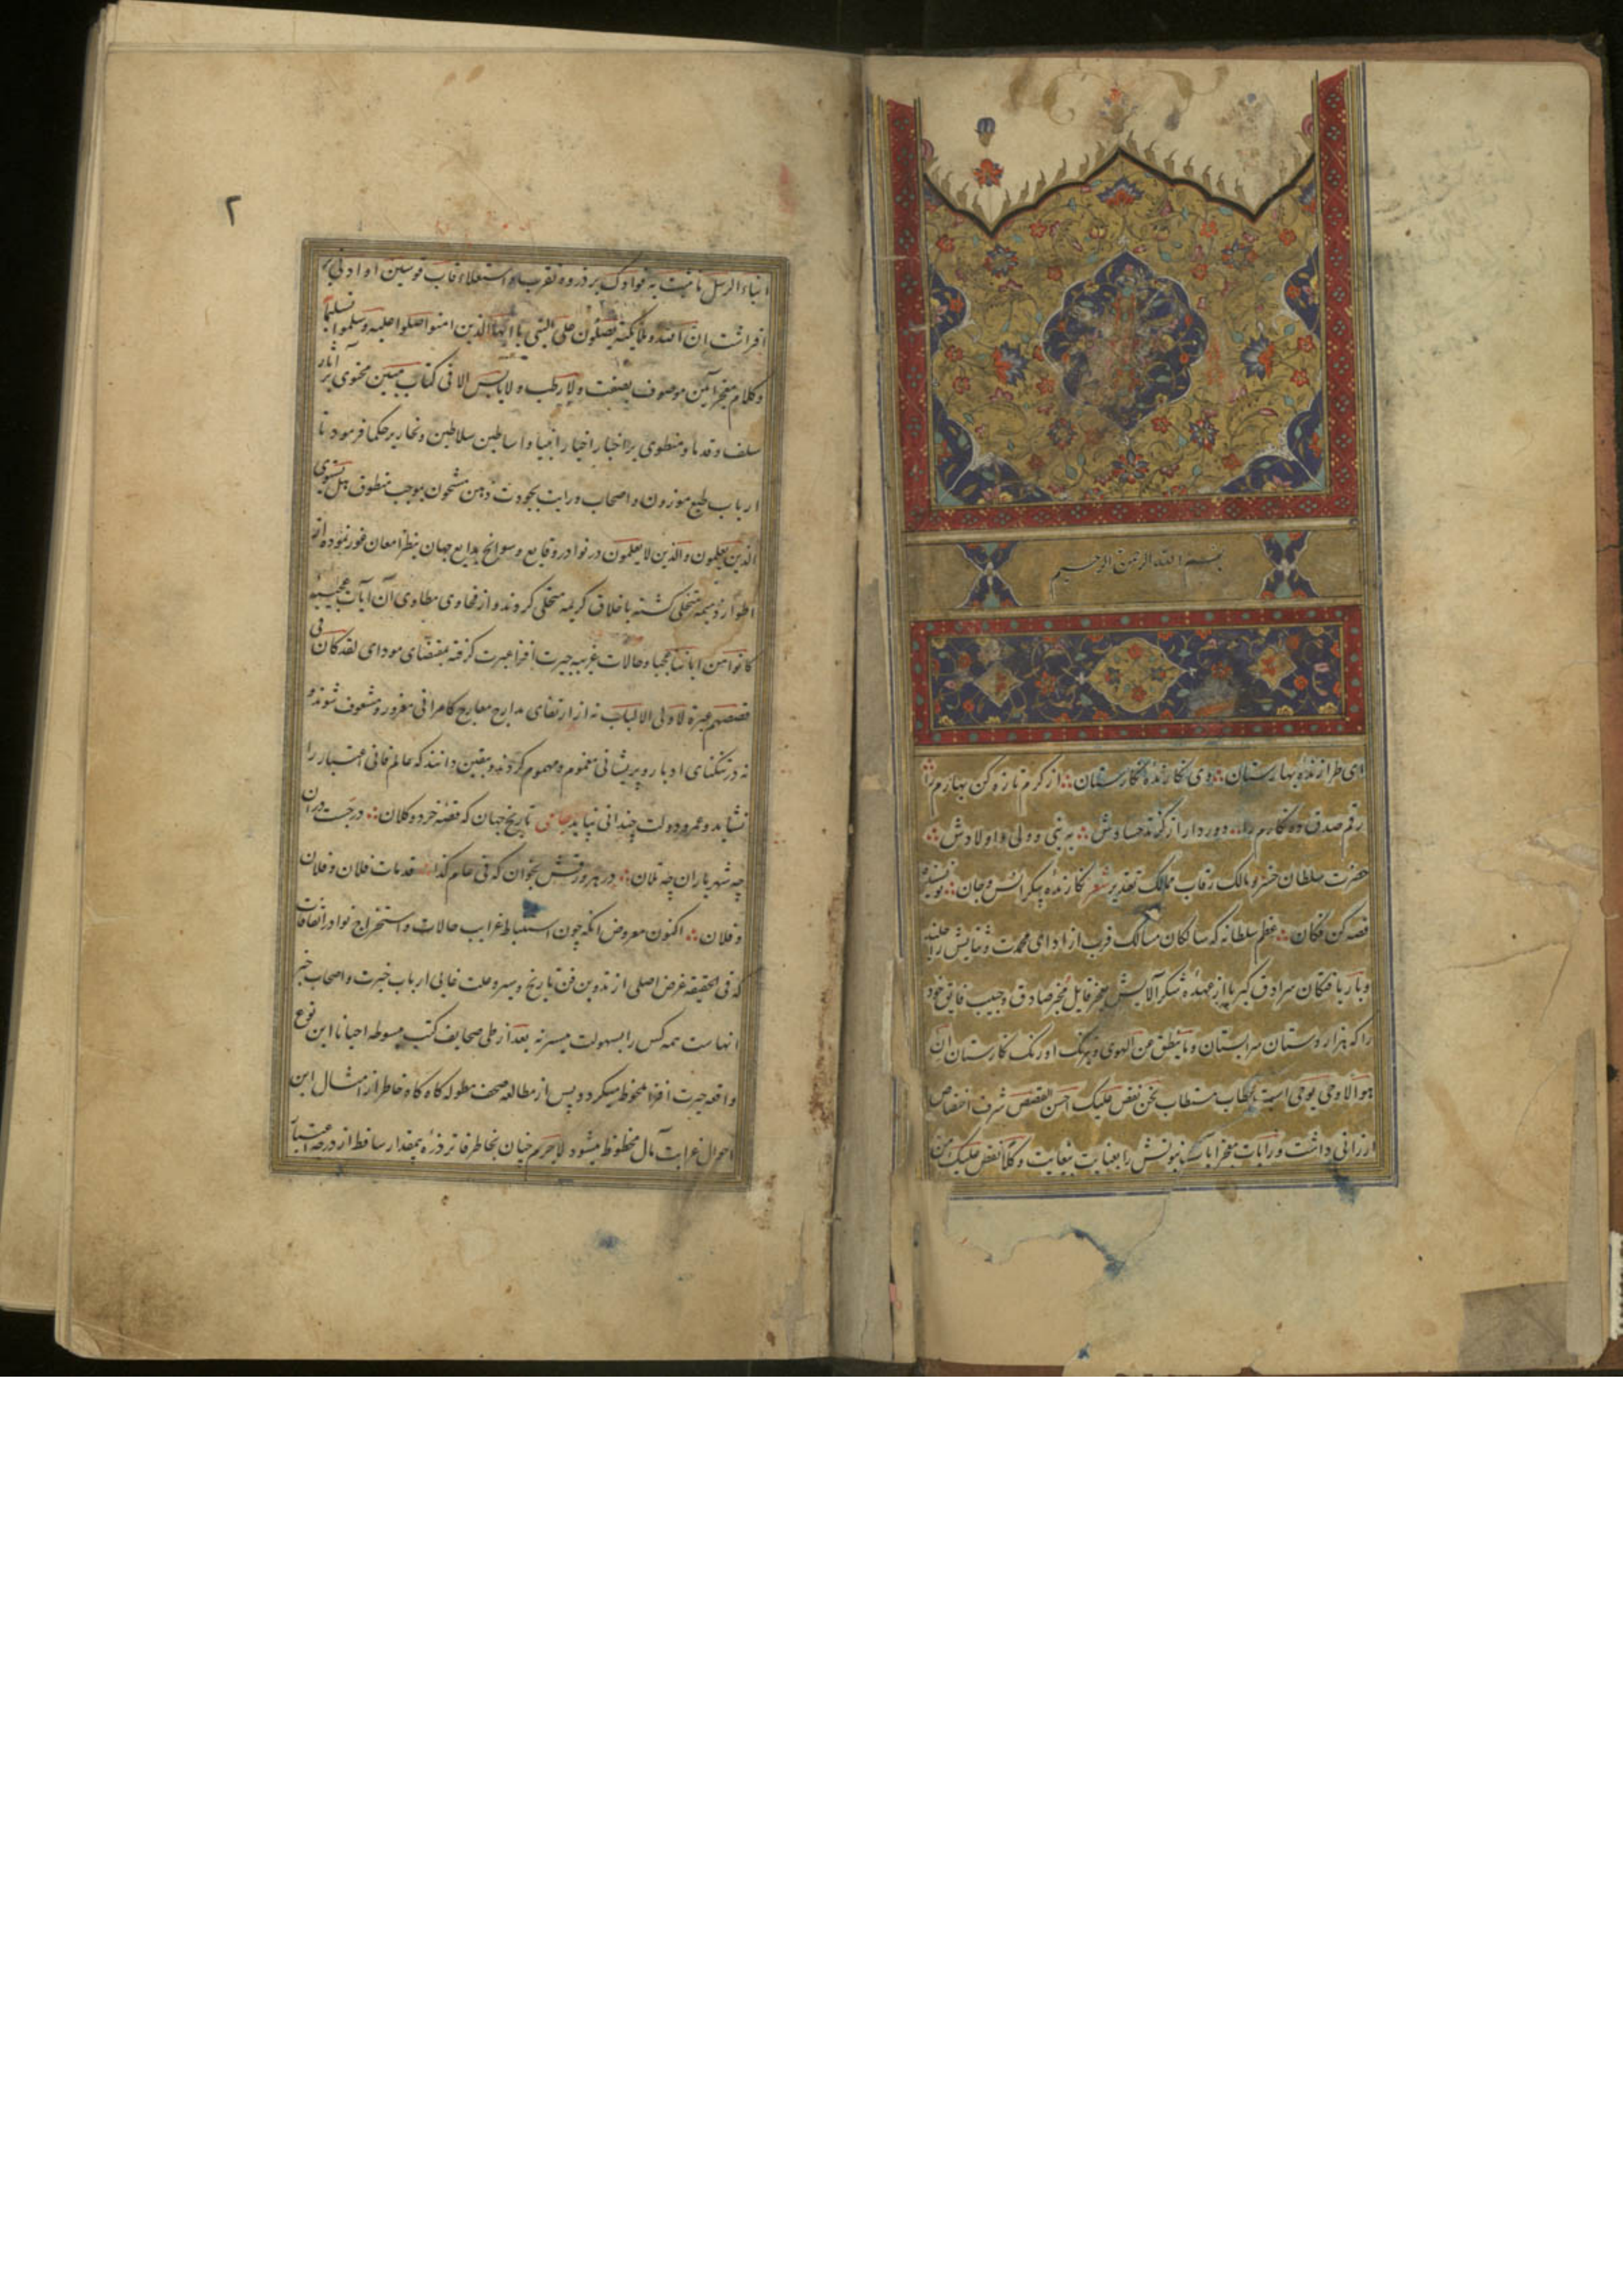 بسم الله الرحمن الرحیم
ای طرازندهٔ بهارستان ؞ وی نکارندهٔ نکارستان ؞ از کرم تازه کن بهارم را
رقم صدق ده نکارم را ؞ دور دار از کزند حسادش ؞ به نبی و ولی و اولادش ؞
حضرت سلطان خسرو مالک رقاب ممالک تقدیر شعر نکارنده پیکر انس و جان ؞ نویسنده
قصه کن فکان ؞ عظم سلطانه که سالکان مسالک قرب از ادای محمدت و ثنایش
و باریافتکان سرادق کبریا از عهدهٔ شکر آلایش بعجز قایل مخبر صادق و حبیب فایق خود
را که هزار دستان سرابستان و ما ینطق عن الهوی و نیرنک اورنک نکارستان ان
هو الا وحی یوحی است بخطاب مستطاب نحن نقص علیک احسن القصص شرف اختصاص
ارزانی داشت و رایات معجز آیات را بعنایت بیغایت و کلا نقص علیک من
انباء الرسل ما نثبت به فوادک بر ذروه تقرب و استعلاء قاب قوسین او ادنی بر
افراشت ان الله و ملایکته یصلون علی النبی یا ایها الذین امنوا صلوا علیه و سلموا تسلیما
و کلام معجز آیین موصوف بصفت و لا رطب و لا یابس الا فی کتاب مبین محتوی بر آثار
سلف و قدما و منطوی بر اخبار اخیار انبیا و اساطین سلاطین و نحاریر حکما فرمود تا
ارباب طبع موزون و اصحاب درایت بجودت ذهن مشحون بموجب منطوق هل یستوی
الذین یعلمون و الذین لا یعلمون در نوادر وقایع و سوانح بدایع جهان بنظر امعان غور نموده از
اطوار ذمیمه متخلی کشته باخلاق کریمه متحلی کردند و از فحاوی مطاوی آن آیات عجیبه
کانوا من ایاتنا عجبا و حالات غریبه حیرت افزا عبرت کرفته بمقتضای مودای لقد کان فی
قصصهم عبرة لاولی الالباب نه از ارتقای مدارج معارج کامرانی مغرور و مشعوف شوند و
نه در تنکنای ادبار و پریشانی مغموم و مهموم کردند و بیقین دانند که عالم فانی اعتبار را
نشاید و عمر و دولت چندانی نپاید جامی تاریخ جهان که قصهٔ خرد و کلان ؞ درجست در ان
چه شهریاران چه یلان ؞ در هر ورقش بخوان که فی عام کذا ؞ قد مات فلان و فلان
و فلان ؞ اکنون معروض آنکه چون استنباط غرایب حالات و استخراج نوادر اتفاقات
که فی الحقیقه غرض اصلی از تدوین فن تاریخ و سیر و علت غایی ارباب خبرت و اصحاب خبر
انهاست همه کس را بسهولت میسر نه بعد از طی صحایف کتب مبسوطه احیانا این نوع
واقعه حیرت افزا ملحوظ میکردد و پس از مطالعه صحف مطوله کاه کاه خاطر از امثال این
احوال غرابت مآل محظوظ میشود لاجرم چنان بخاطر فاتر ذرهٔ بیمقدار ساقط از درجه اعتبار
۲